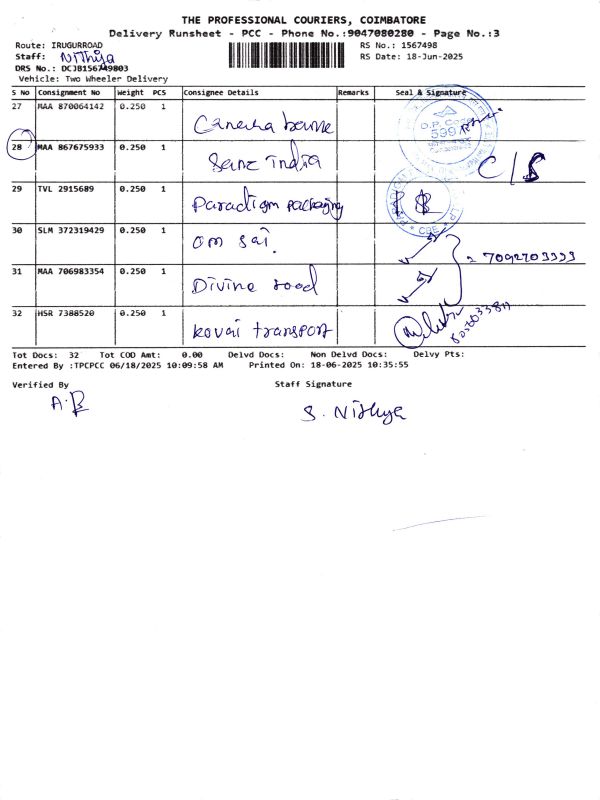 THE PROFESSIONAL COURIERS, COIMBATORE
Delivery Runsheet - PCC - Phone No.:9047080280 - Page No.:3
Route: IRUGURROAD RS No.: 1567498
Staff: Nithya RS Date: 18-Jun-2025
DRS No.: DCJB156749803
Vehicle: Two Wheeler Delivery
S No Consignment No Weight PCS Consignee Details Remarks Seal & Signature
27 MAA 870064142 0.250 1
28 MAA 867675933 0.250 1 India C/S
29 TVL 2915689 0.250 1 Paradigm packaging
30 SLM 372319429 0.250 1 Om Sai.
31 MAA 706983354 0.250 1 Divine
32 HSR 7388520 0.250 1 kovai transport
Tot Docs: 32 Tot COD Amt: 0.00 Delvd Docs: Non Delvd Docs: Delvy Pts:
Entered By :TPCPCC 06/18/2025 10:09:58 AM Printed On: 18-06-2025 10:35:55
Verified By Staff Signature
A.B S. Nithya